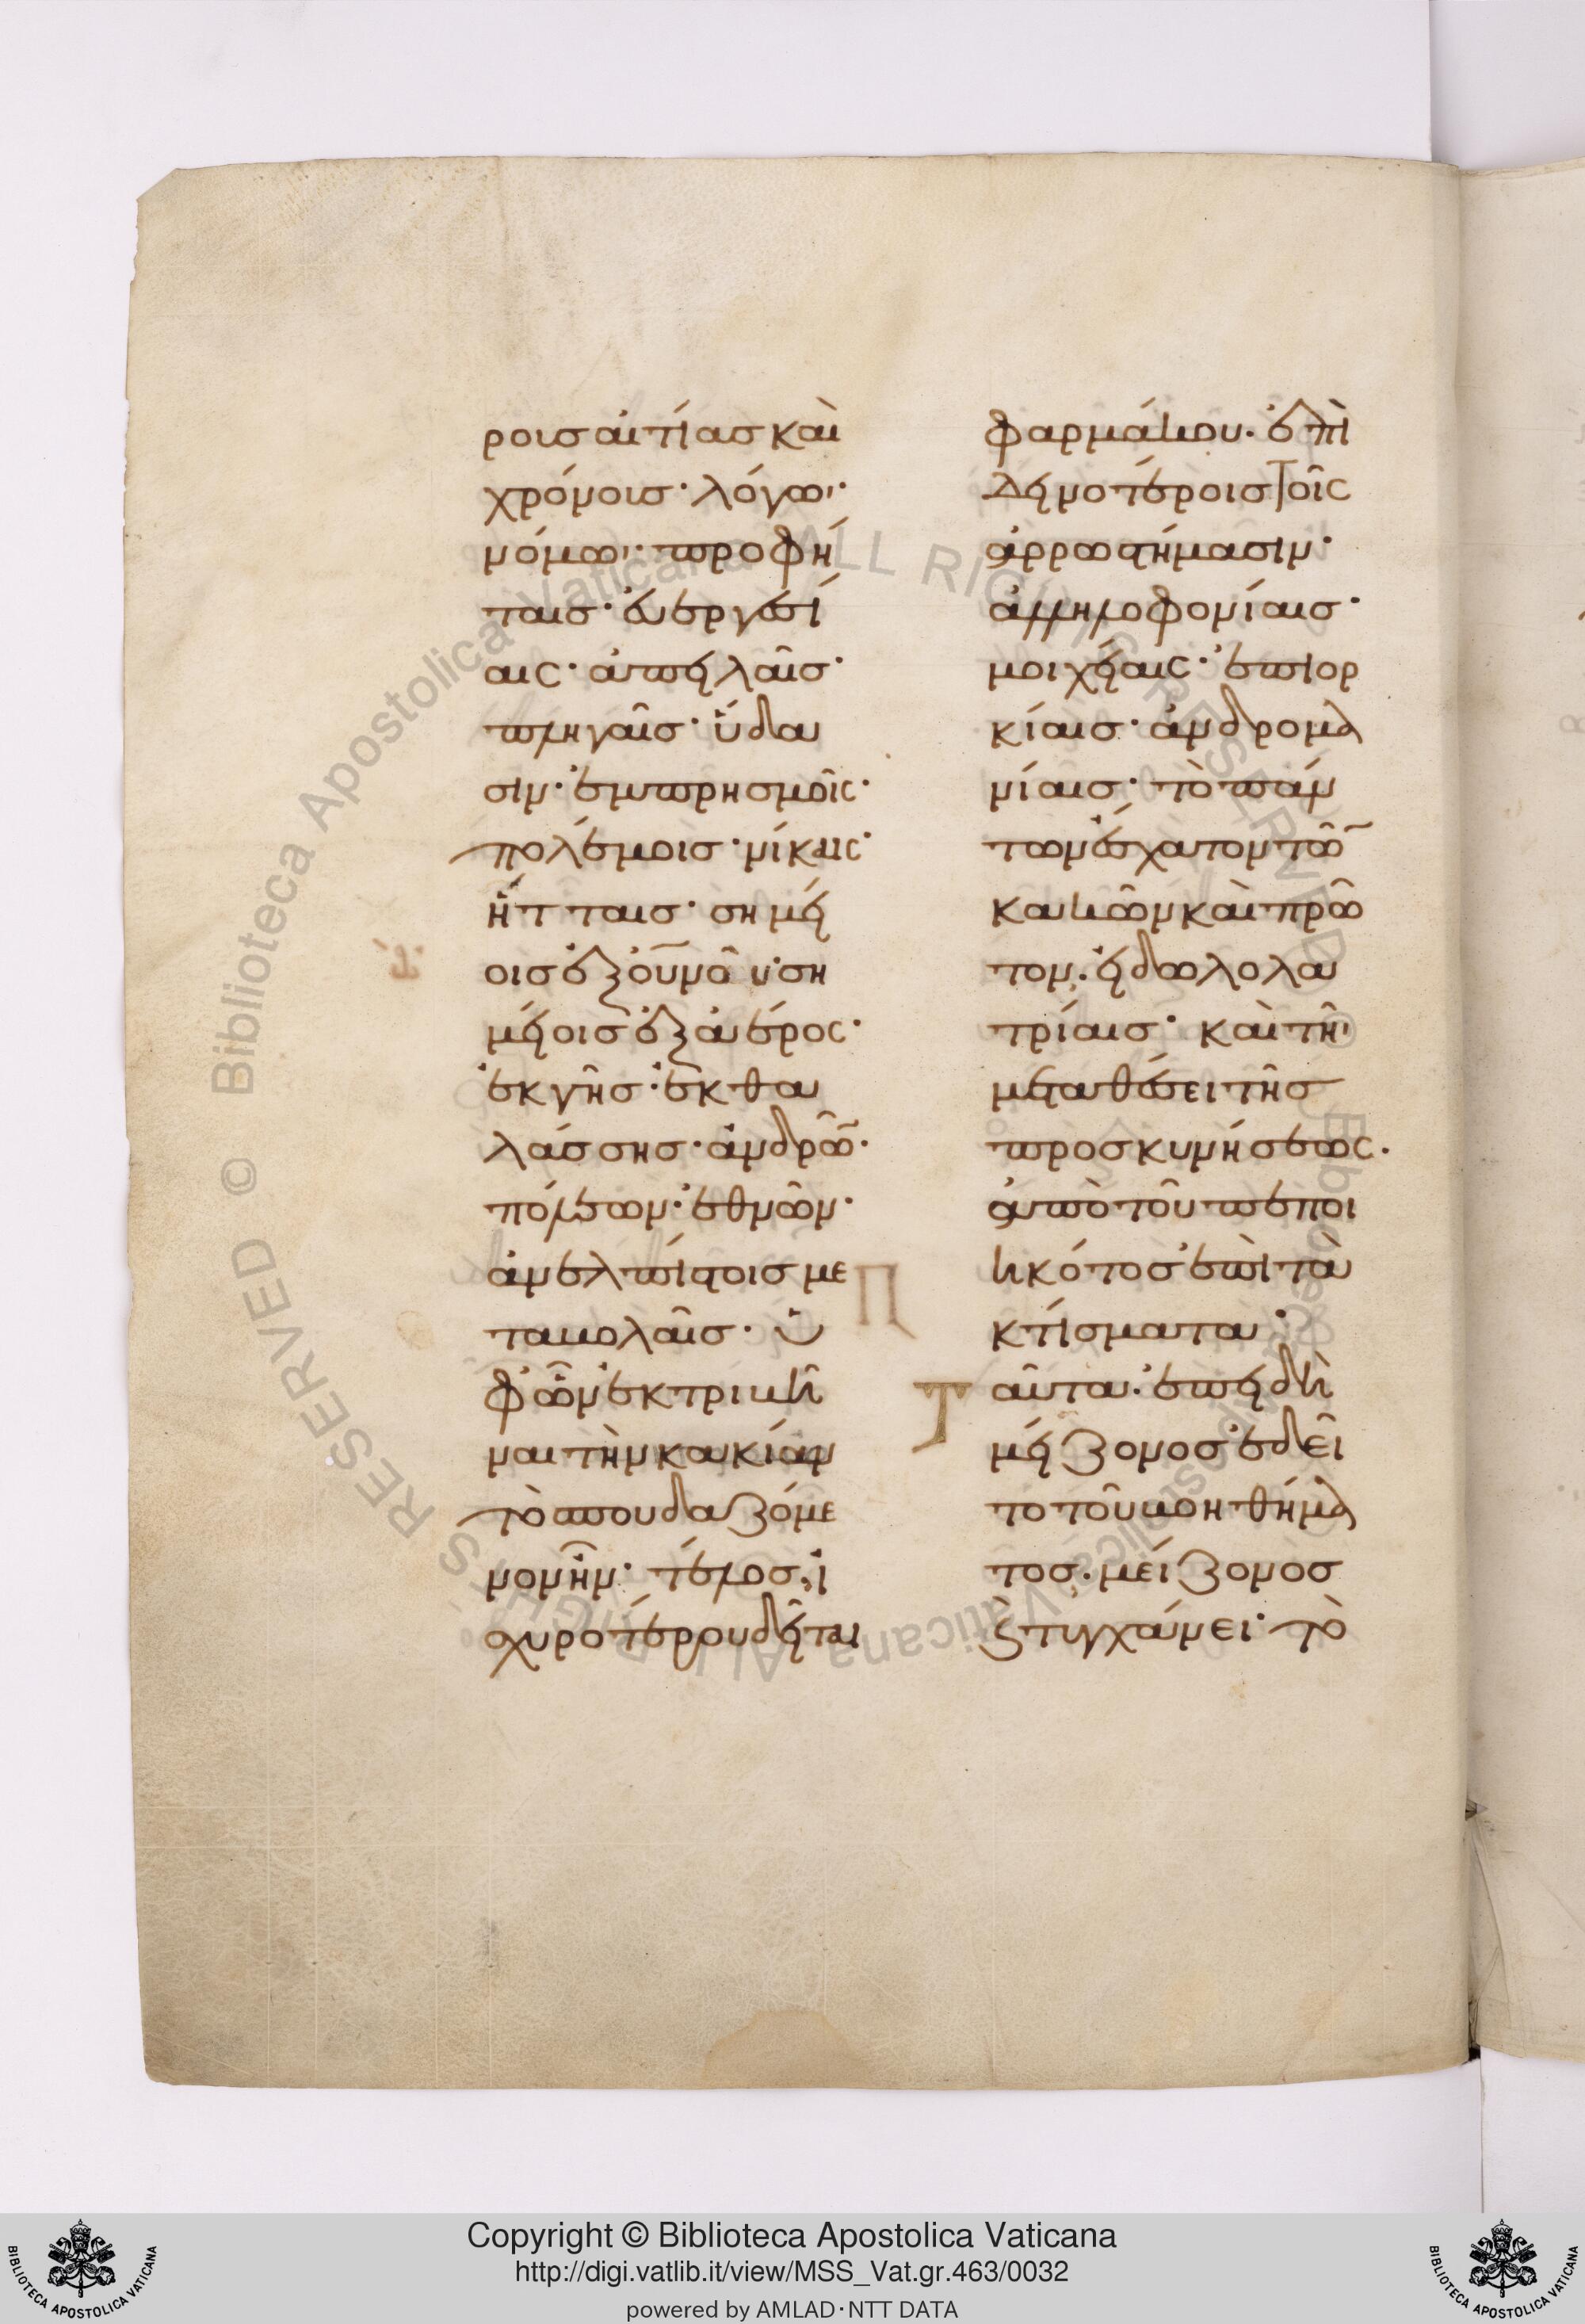 ροις αἰτίας καὶ
χρόνοις· λόγωι·
νόμωι· προφή
ταις· εὐεργεσί
αις· ἀπειλαῖς·
πληγαῖς· ὕδα
σιν· ἐμπρησμοῖς·
πολέμοις· νίκαις·
ἥτταις· σημεί
οις ἐξ οὐ(ρα)νοῦ· ση
μείοις ἐξ ἀέρος·
ἐκ γῆς· ἐκ θα
λάσσης· ἀνδρῶν·
πόλεων· ἐθνῶν·
ἀνελπίστοις με
ταβολαῖς· ὑ
φ' ὧν ἐκτριβῆ
ναι τὴν κακίαν
τὸ σπουδαζόμε
νον ἦν· τέλος, ἰ
σχυροτέρου δεῖται
φαρμάκου· ἐπὶ
δεινοτέροις τοῖς
ἀρρωστήμασιν·
ἀλληλοφονίαις·
μοιχείαις· ἐπιορ
κίαις· ἀνδρομα
νίαις· τὸ πάν
των ἔσχατον τῶν
κακῶν καὶ πρῶ
τον· εἰδωλολα
τρίαις· καὶ τῆι
μεταθέσει τῆς
προσκυνήσεως·
ἀπὸ τοῦ πεποι
ηκότος ἐπὶ τὰ
κτίσματα·
Ταῦτα· ἐπειδὴ
μείζονος ἐδεῖ
το τοῦ βοηθήμα
τος· μείζονος
καὶ τυγχάνει· τὸ
Copyright © Biblioteca Apostolica Vaticana
http://digi.vatlib.it/view/MSS_Vat.gr.463/0032
powered by AMLAD·NTT DATA